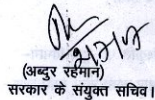 (अब्दुर रहमान)
सरकार के संयुक्त सचिव।